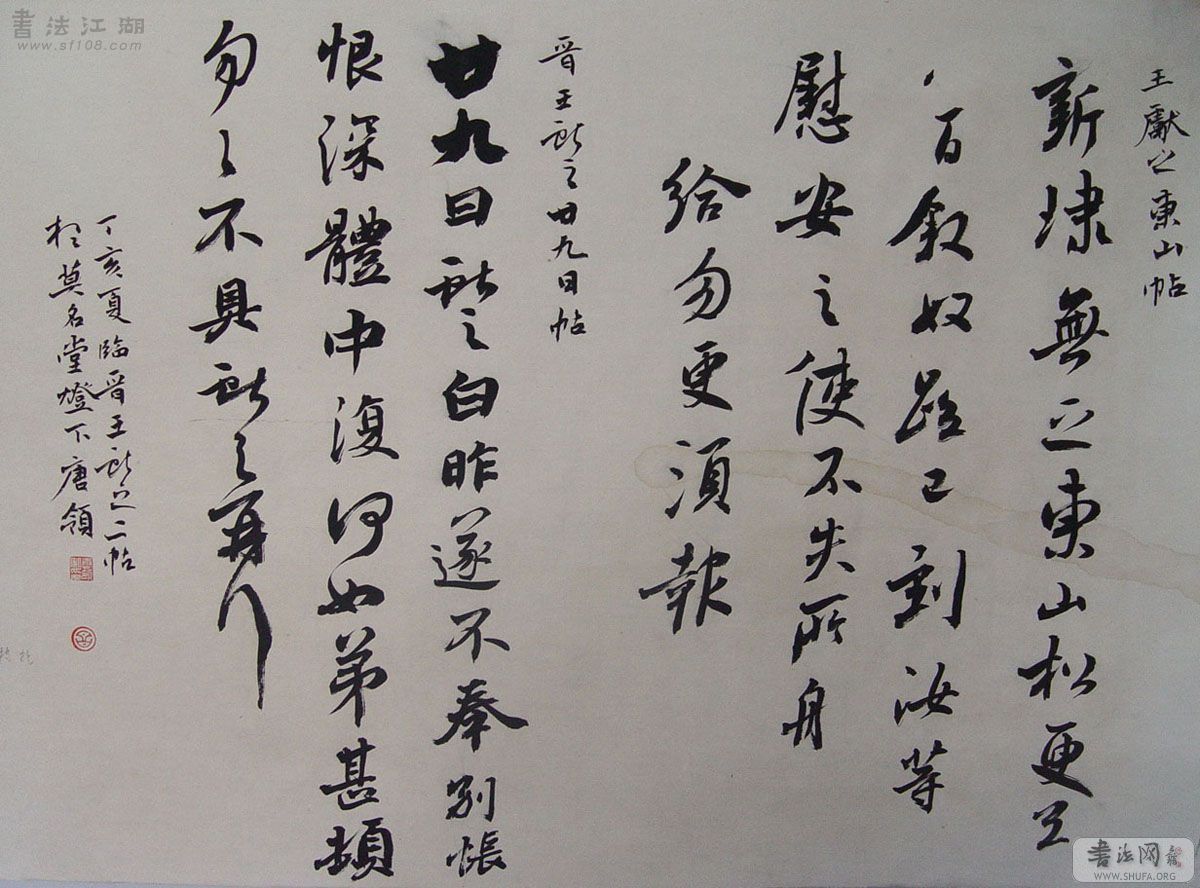 王獻之東山帖
新埭無乏東山松更送
八百叙奴路已到汝等
慰安之使不失所舟
給勿更須報
晋王獻之廿九日帖
廿九日獻之白昨遂不奉別悵
恨深體中復何如弟甚頓
匆匆不具獻之再行
丁亥夏臨晋王獻之二帖
於莫名堂燈下唐領
書法江湖
www.sf108.com
書法网
WWW.SHUFA.ORG